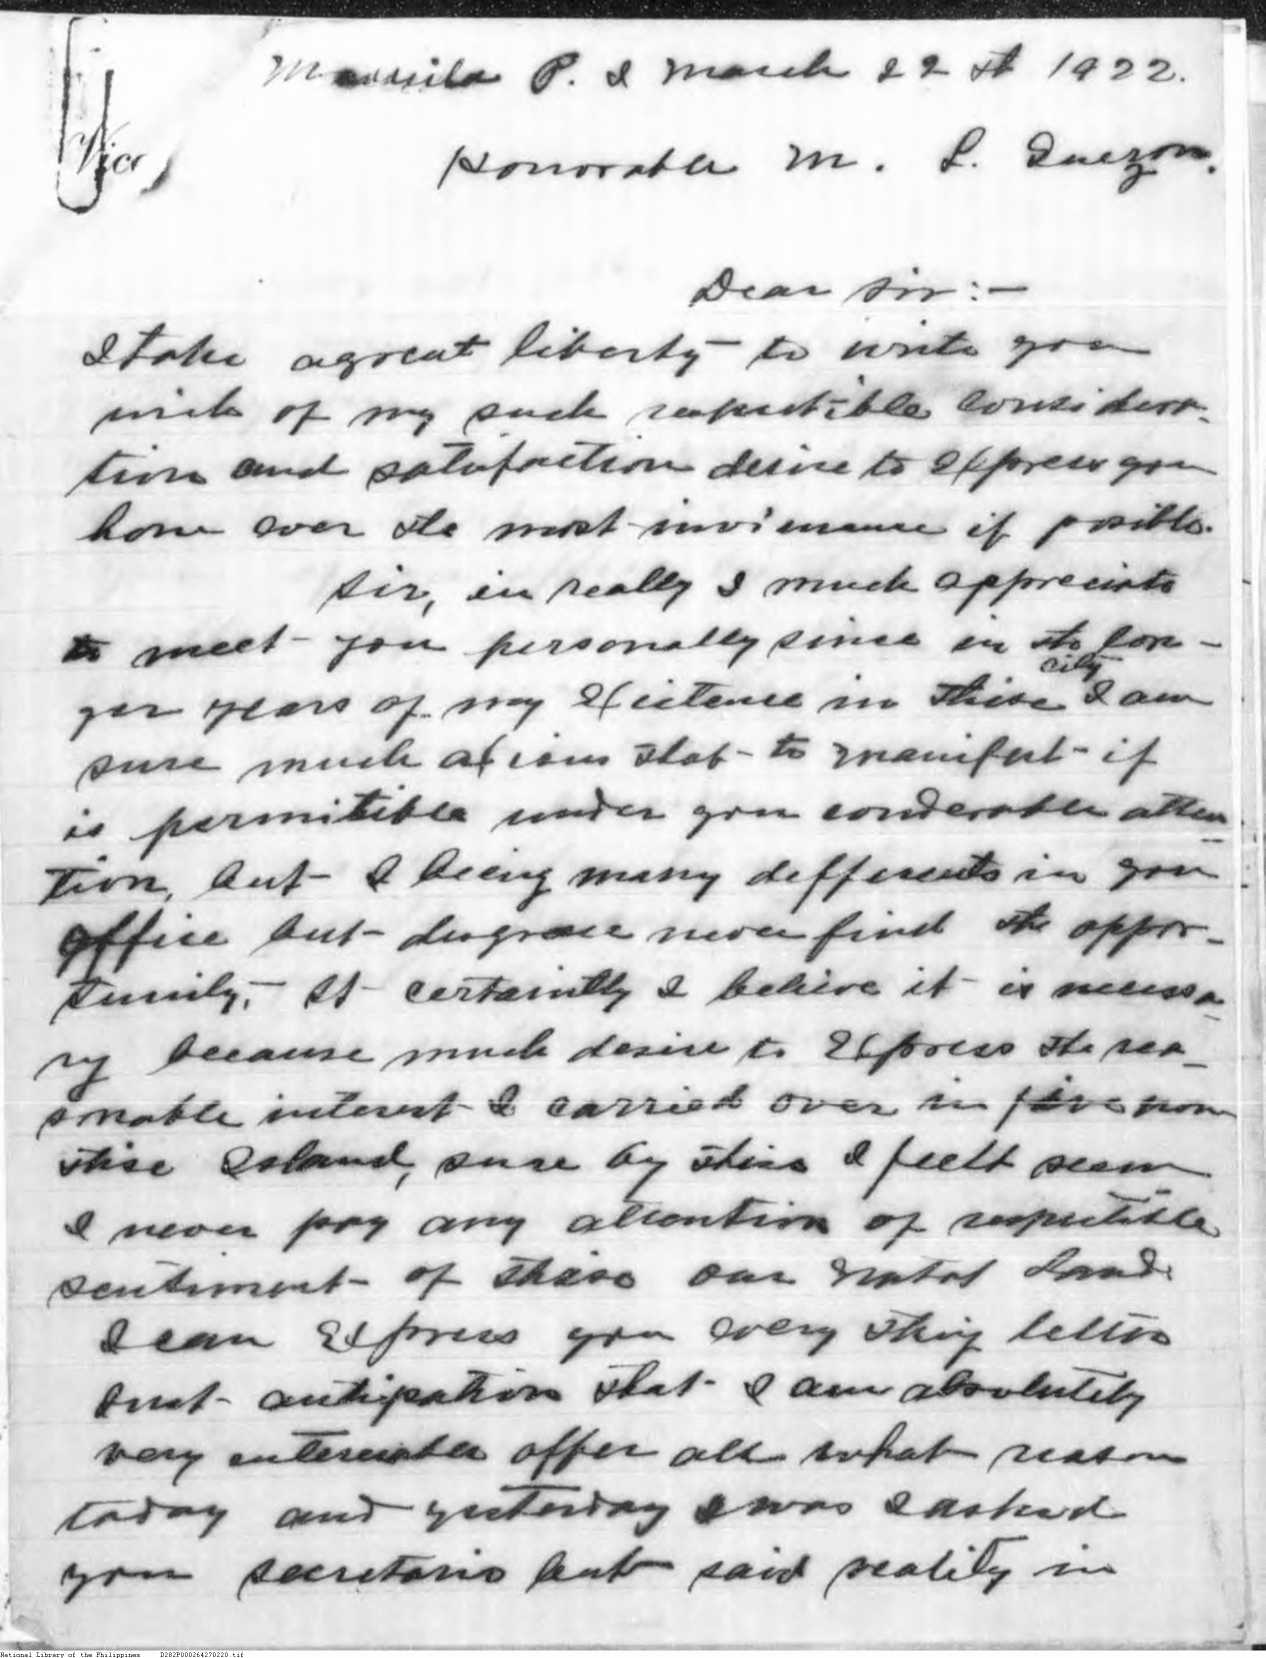 Manila P. I March 22 th 1922.
Vice
Honorable M. L. Quezon.
Dear Sir:-
I take a great liberty to write you
wich of my such respectible considera-
tion and satisfaction desire to Express you
home over the most if posible.
Sir, in really I much appreciate
to meet you personally since in the lon-
city
ger years of my Existence in these I am
sure much axious that to manifest if
is permitible under you conderable atten-
tion, but I being many defferents in you
office but disgrace never find the oppor-
tunily, It certaintly I believe it is necessa-
ry because much desire to Express the rea-
sonable interest I carried over in
thise Island, sure by thise I feelt seem
I never pay any attention of respectible
sentiment of these our natal Land
I can Express you every thing letter
but antipation that I am absolutely
very offer all what reason
today and yesterday I was I asked
you secretario but said reality in
National Library of the Philippines D282P000264270220.tif